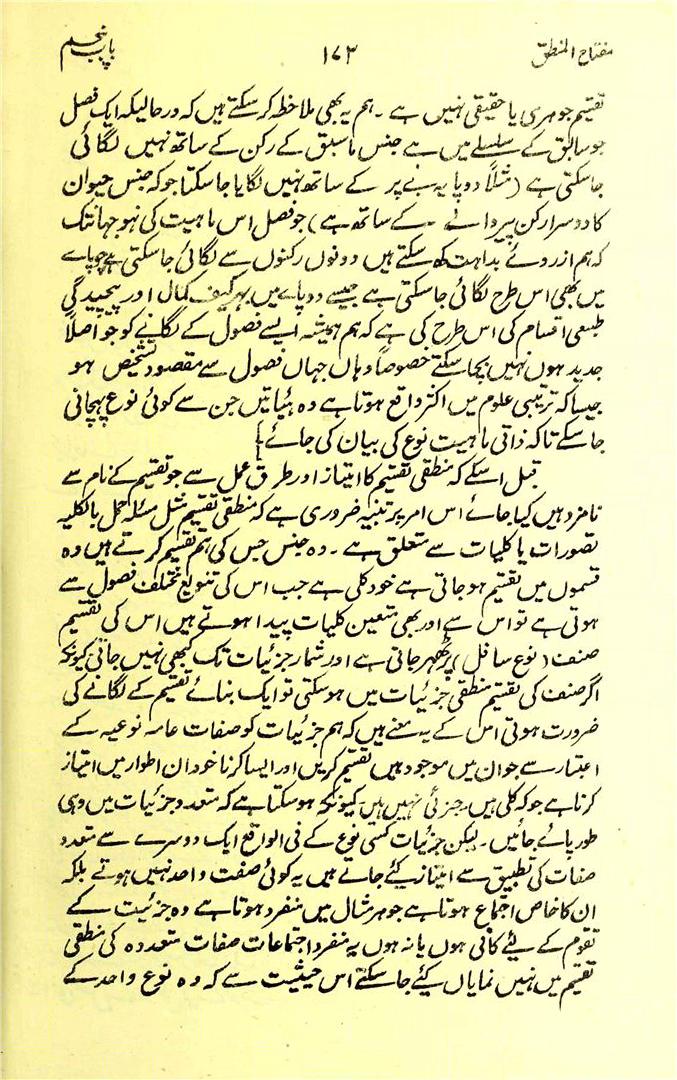 مفتاح المنطق ۱۷۳ باب پنجم
تقیم جوہری یا حقیقی نہیں ہے ۔ ہم یہ بھی ملاخطہ کر سکتے ہیں کہ در حالیکہ ایک فصل
جو سابق کے سلسلے میں ہے جنس ماسبق کے رکن کے ساتھ نہیں لگائی
جاسکتی ہے (مثلاً دوپایہ بے پر کے ساتھ نہیں لگایا جاسکتا جو کہ جنس حیوان
کا دوسرا رکن ہے کے ساتھ ہے) جو فصل اس ماہیت کی نہو جہانتک
کہ ہم ازروئے بداہت کہ سکتے ہیں دونوں رکنوں سے لگائی جاسکتی ہے چوپائے
میں بھی اس طرح لگائی جاسکتی ہے جیسے دوپائے میں بہر کیف کمال اور پیچیدگی
طبعی اقسام کی اس طرح کی ہے کہ ہم ہمیشہ ایسے فصول کے لگانے کو جو اصلاً
جدید ہوں نہیں بچا سکتے خصوصاً وہاں جہاں فصول سے مقصود تشخیص ہو
جیسا کہ ترتیبی علوم میں اکثر واقع ہوتا ہے وہ ہئیاتیں جن سے کوئی نوع پہچانی
جاسکے تاکہ ذاتی ماہیت نوع کی بیان کی جائے}
قبل اسکے کہ منطقی تقیم کا امتیاز اور طرق عمل سے جو تقیم کے نام سے
نامزد ہیں کیا جائے اس امر پر تنبیہ ضروری ہے کہ منطقی تقیم مثل مسئلہ حمل بالکلیہ
تصورات یا کلیات سے متعلق ہے ۔ وہ جنس جس کی ہم تقیم کرتے ہیں وہ
قسموں میں تقیم ہو جاتی ہے خود کلی ہے جب اس کی تنویع مختلف فصول سے
ہوتی ہے تو اس سے اور بھی متعین کلیات پیدا ہوتے ہیں اس کی تقیم
صنف (نوع سافل) پر ٹھہر جاتی ہے اور شمار جزئیات تک کبھی نہیں جاتی کیونکہ
اگر صنف کی تقیم منطقی جزئیات میں ہو سکتی تو ایک بنائے تقیم کے لگانے کی
ضرورت ہوتی اس کے یہ معنے ہیں کہ ہم جزئیات کو صفات عامہ نوعیہ کے
اعتبار سے جو ان میں موجود ہیں تقیم کریں اور ایسا کرنا خود ان اطوار میں امتیاز
کرنا ہے جو کہ کلی ہیں ۔ جزئی نہیں ہیں کیونکہ ہو سکتا ہے کہ متعدد جزئیات میں وہی
طور پائے جائیں ۔ لیکن جزئیات کسی نوع کے فی الواقع ایک دوسرے سے متعدد
صفات کی تطبیق سے امتیاز کیے جاتے ہیں یہ کوئی صفت واحد نہیں ہوتے بلکہ
ان کا خاص اجتماع ہوتا ہے جو ہر مثال میں منفرد ہوتا ہے وہ جزئیت کے
تقوم کے لیے کافی ہوں یا نہ ہوں یہ منفرد اجتماعات صفات متعددہ کی منطقی
تقیم میں نہیں نمایاں کیے جاسکتے اس حیثیت سے کہ وہ نوع واحد کے